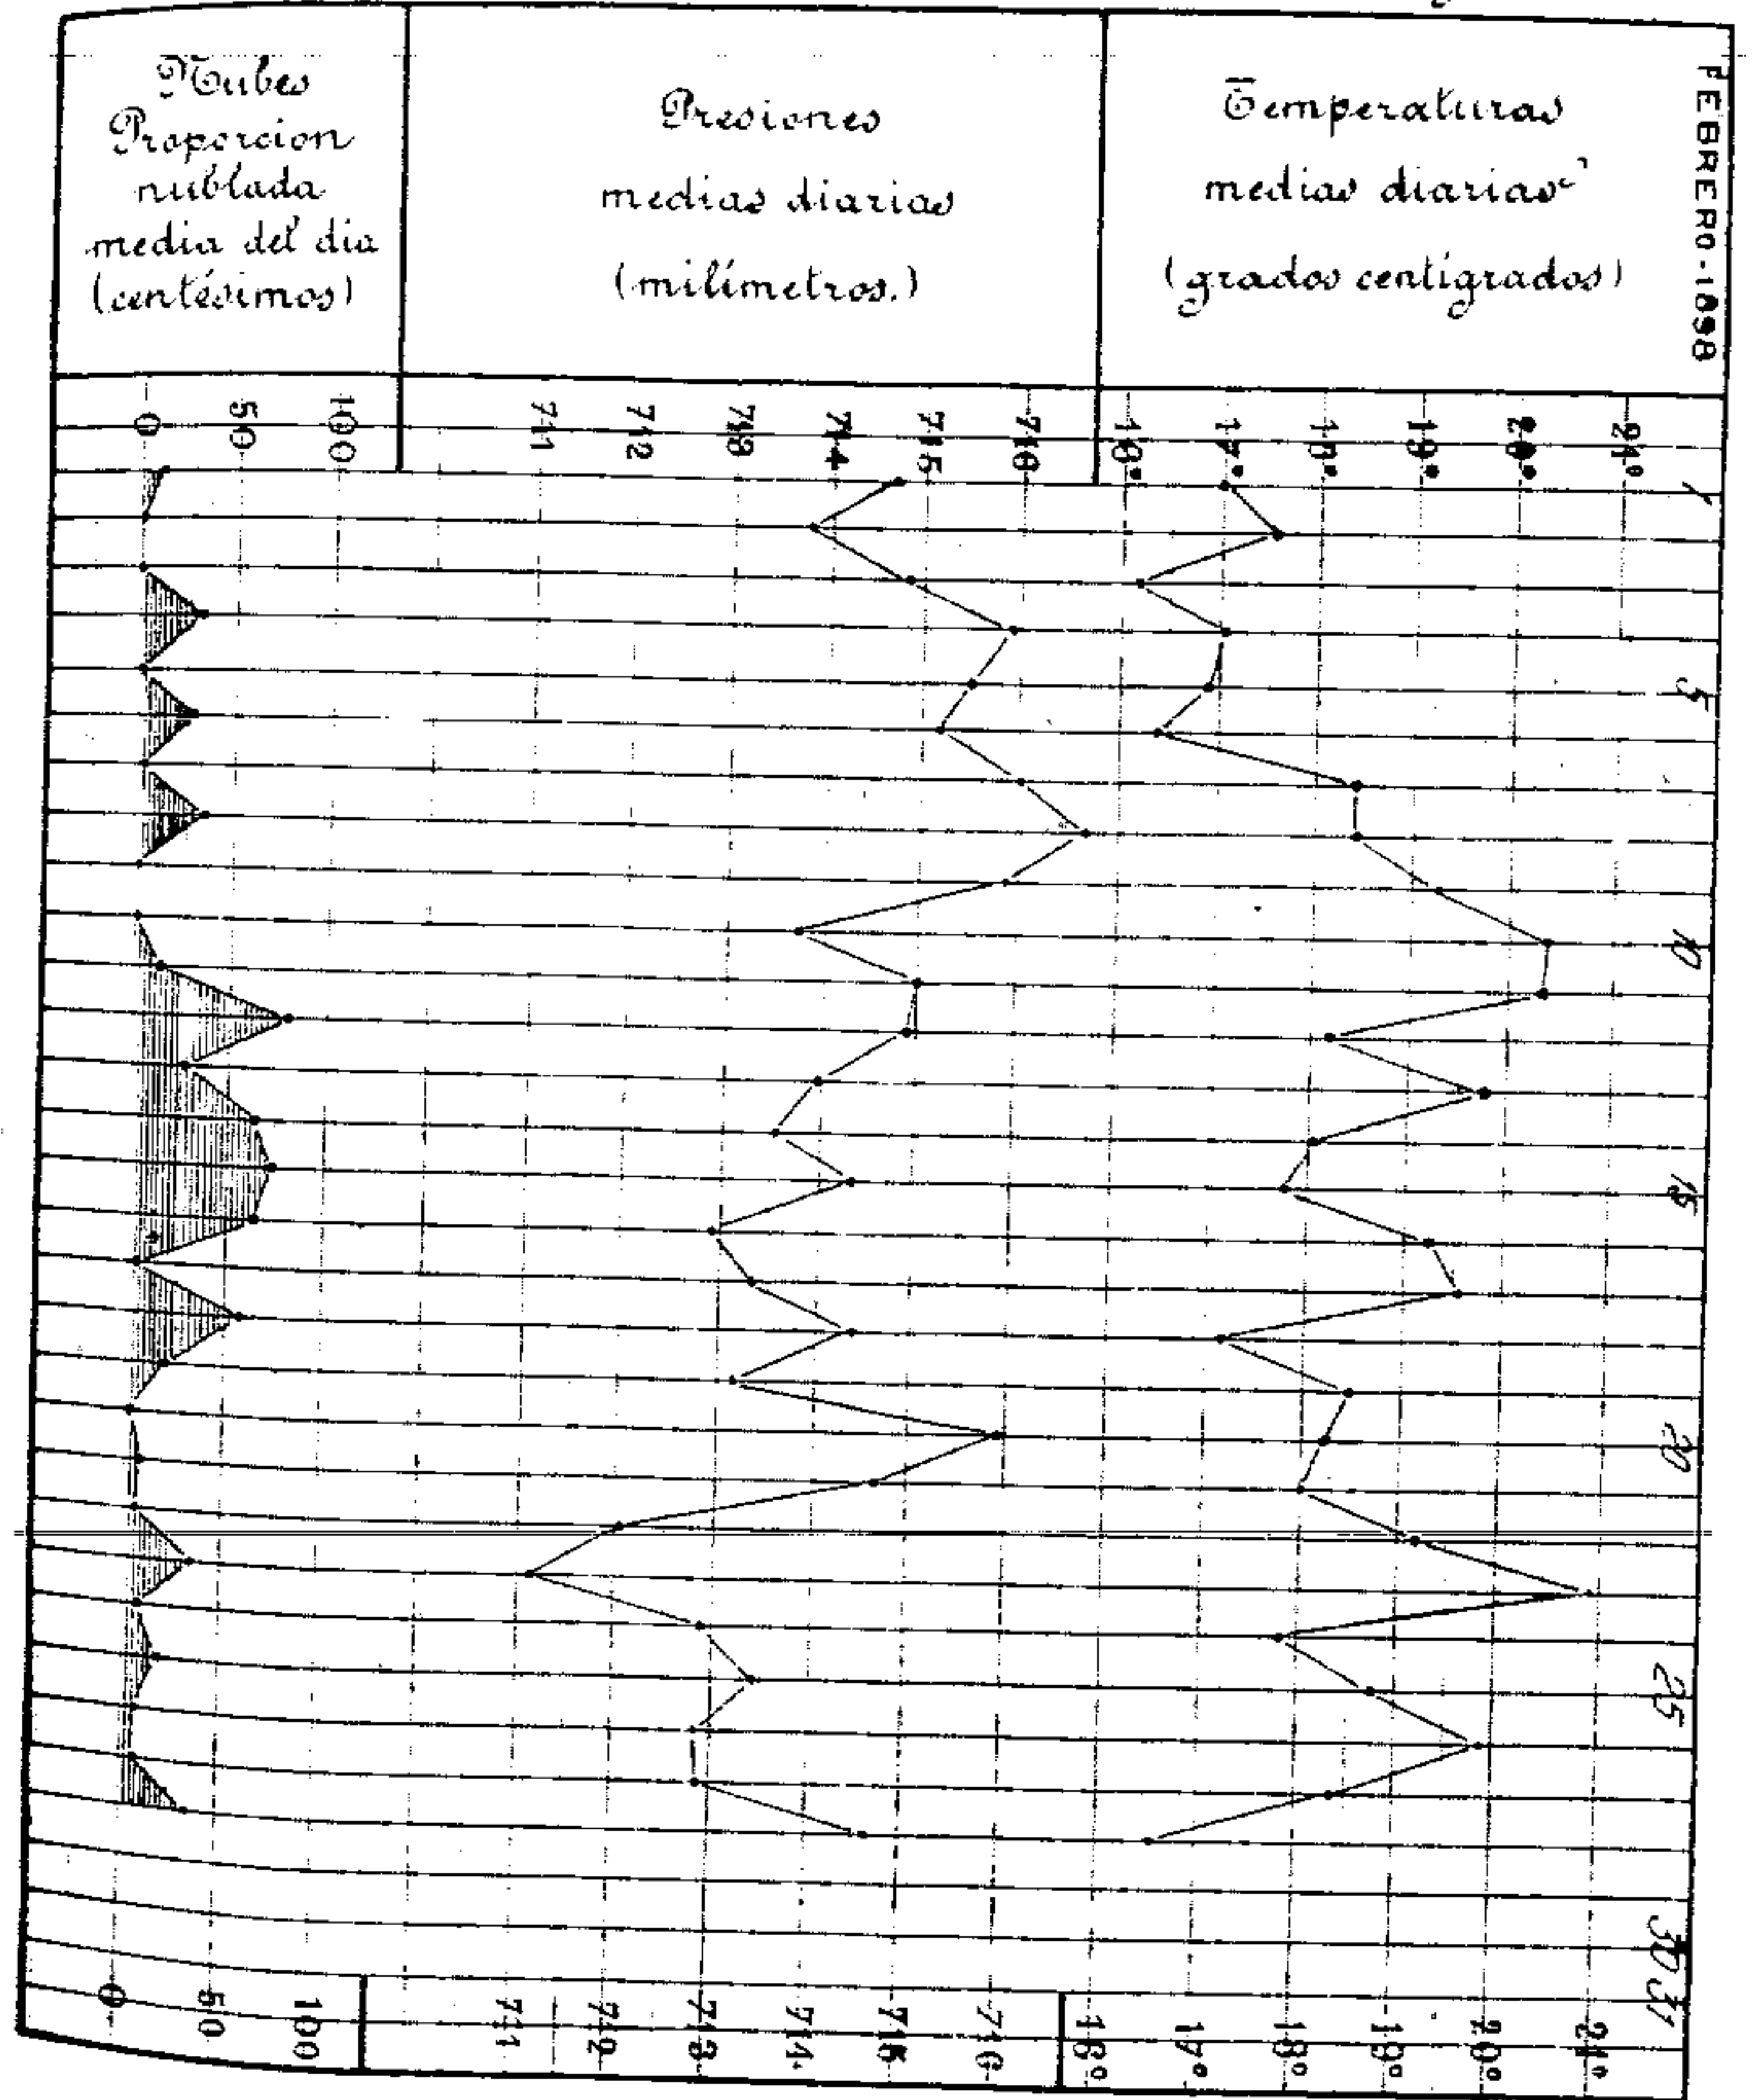 Nubes
Proporcion
nublada
media del dia
(centésimos)
Presiones
medias diarias
(milímetros.)
Temperaturas
medias diarias
(grados centígrados)
FEBRERO-1898
0 50 100 711 712 713 714 715 716 16° 17° 18° 19° 20° 21°
1
5
10
15
20
25
30 31
0 50 100 711 712 713 714 715 716 16° 17° 18° 19° 20° 21°